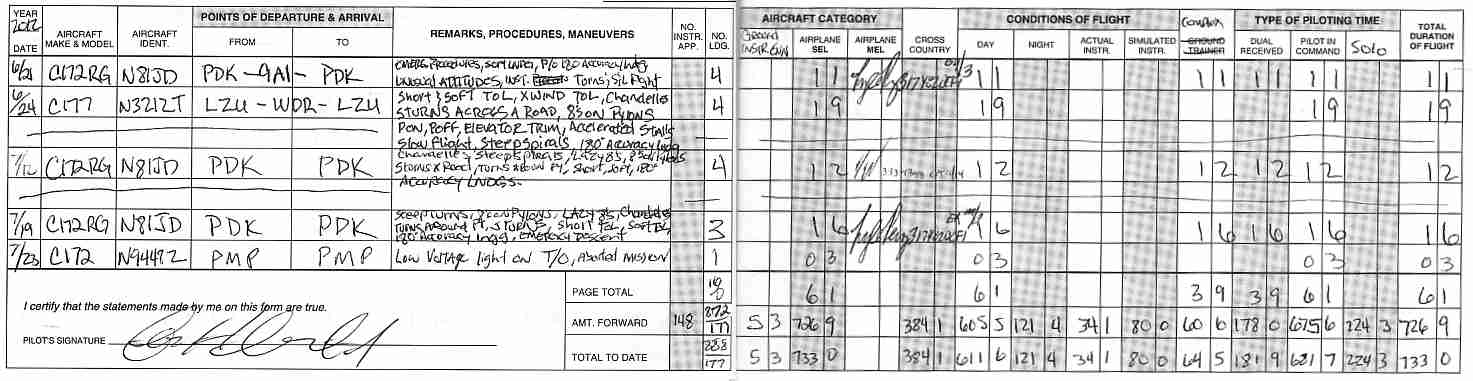 YEAR 2012 POINTS OF DEPARTURE & ARRIVAL NO. INSTR. APP. NO. LDG. AIRCRAFT CATEGORY CONDITIONS OF FLIGHT TYPE OF PILOTING TIME TOTAL DURATION OF FLIGHT
DATE AIRCRAFT MAKE & MODEL AIRCRAFT IDENT. FROM TO REMARKS, PROCEDURES, MANEUVERS AIRPLANE SEL AIRPLANE MEL CROSS COUNTRY DAY NIGHT ACTUAL INSTR. SIMULATED INSTR. Complex GROUND TRAINER DUAL RECEIVED PILOT IN COMMAND SOLO
6/21 C172RG N81JD PDK-9A1-PDK 4 1 1 1 1 1 1 1 1 1 1 1 1
UNUSUAL ATTITUDES, INST. Turns, Sl Flight
6/24 C177 N3212T LZU-WDR-LZU Short & SOFT TOL, XWIND TOL, Chandelles 4 1 9 1 9 1 9 1 9
STURNS ACROSS A ROAD, 8'S ON PYLONS
PON, POFF, ELEVATOR TRIM, Accelerated Stalls
Slow Flight, Steep Spirals, 180° Accuracy Lndg
7/12 C172RG N81JD PDK PDK Chandelles, Steep Spirals, LAZY 8S 4 1 2 1 2 1 2 1 2 1 2 1 2
ACCURACY LNDGS.
7/19 C172RG N81JD PDK PDK Steep turns, 8's on Pylons, LAZY 8S, Chandelles 3 1 6 1 6 1 6 1 6 1 6 1 6
TURNS AROUND Pt, S TURNS, Short TOL, Soft TOL
180° Accuracy Lndgs, EMERGCY Descent
7/23 C172 N9447Z PMP PMP Low Voltage light on T/O, Aborted MISSION 1 0 3 0 3 0 3 0 3
I certify that the statements made by me on this form are true.
PILOT'S SIGNATURE
PAGE TOTAL 16 6 1 6 1 3 9 3 9 6 1 6 1
AMT. FORWARD 148 872 177 5 3 726 9 384 1 605 5 121 4 34 1 80 0 60 6 178 0 675 6 224 3 726 9
TOTAL TO DATE 888 177 5 3 733 0 384 1 611 6 121 4 34 1 80 0 64 5 181 9 681 7 224 3 733 0